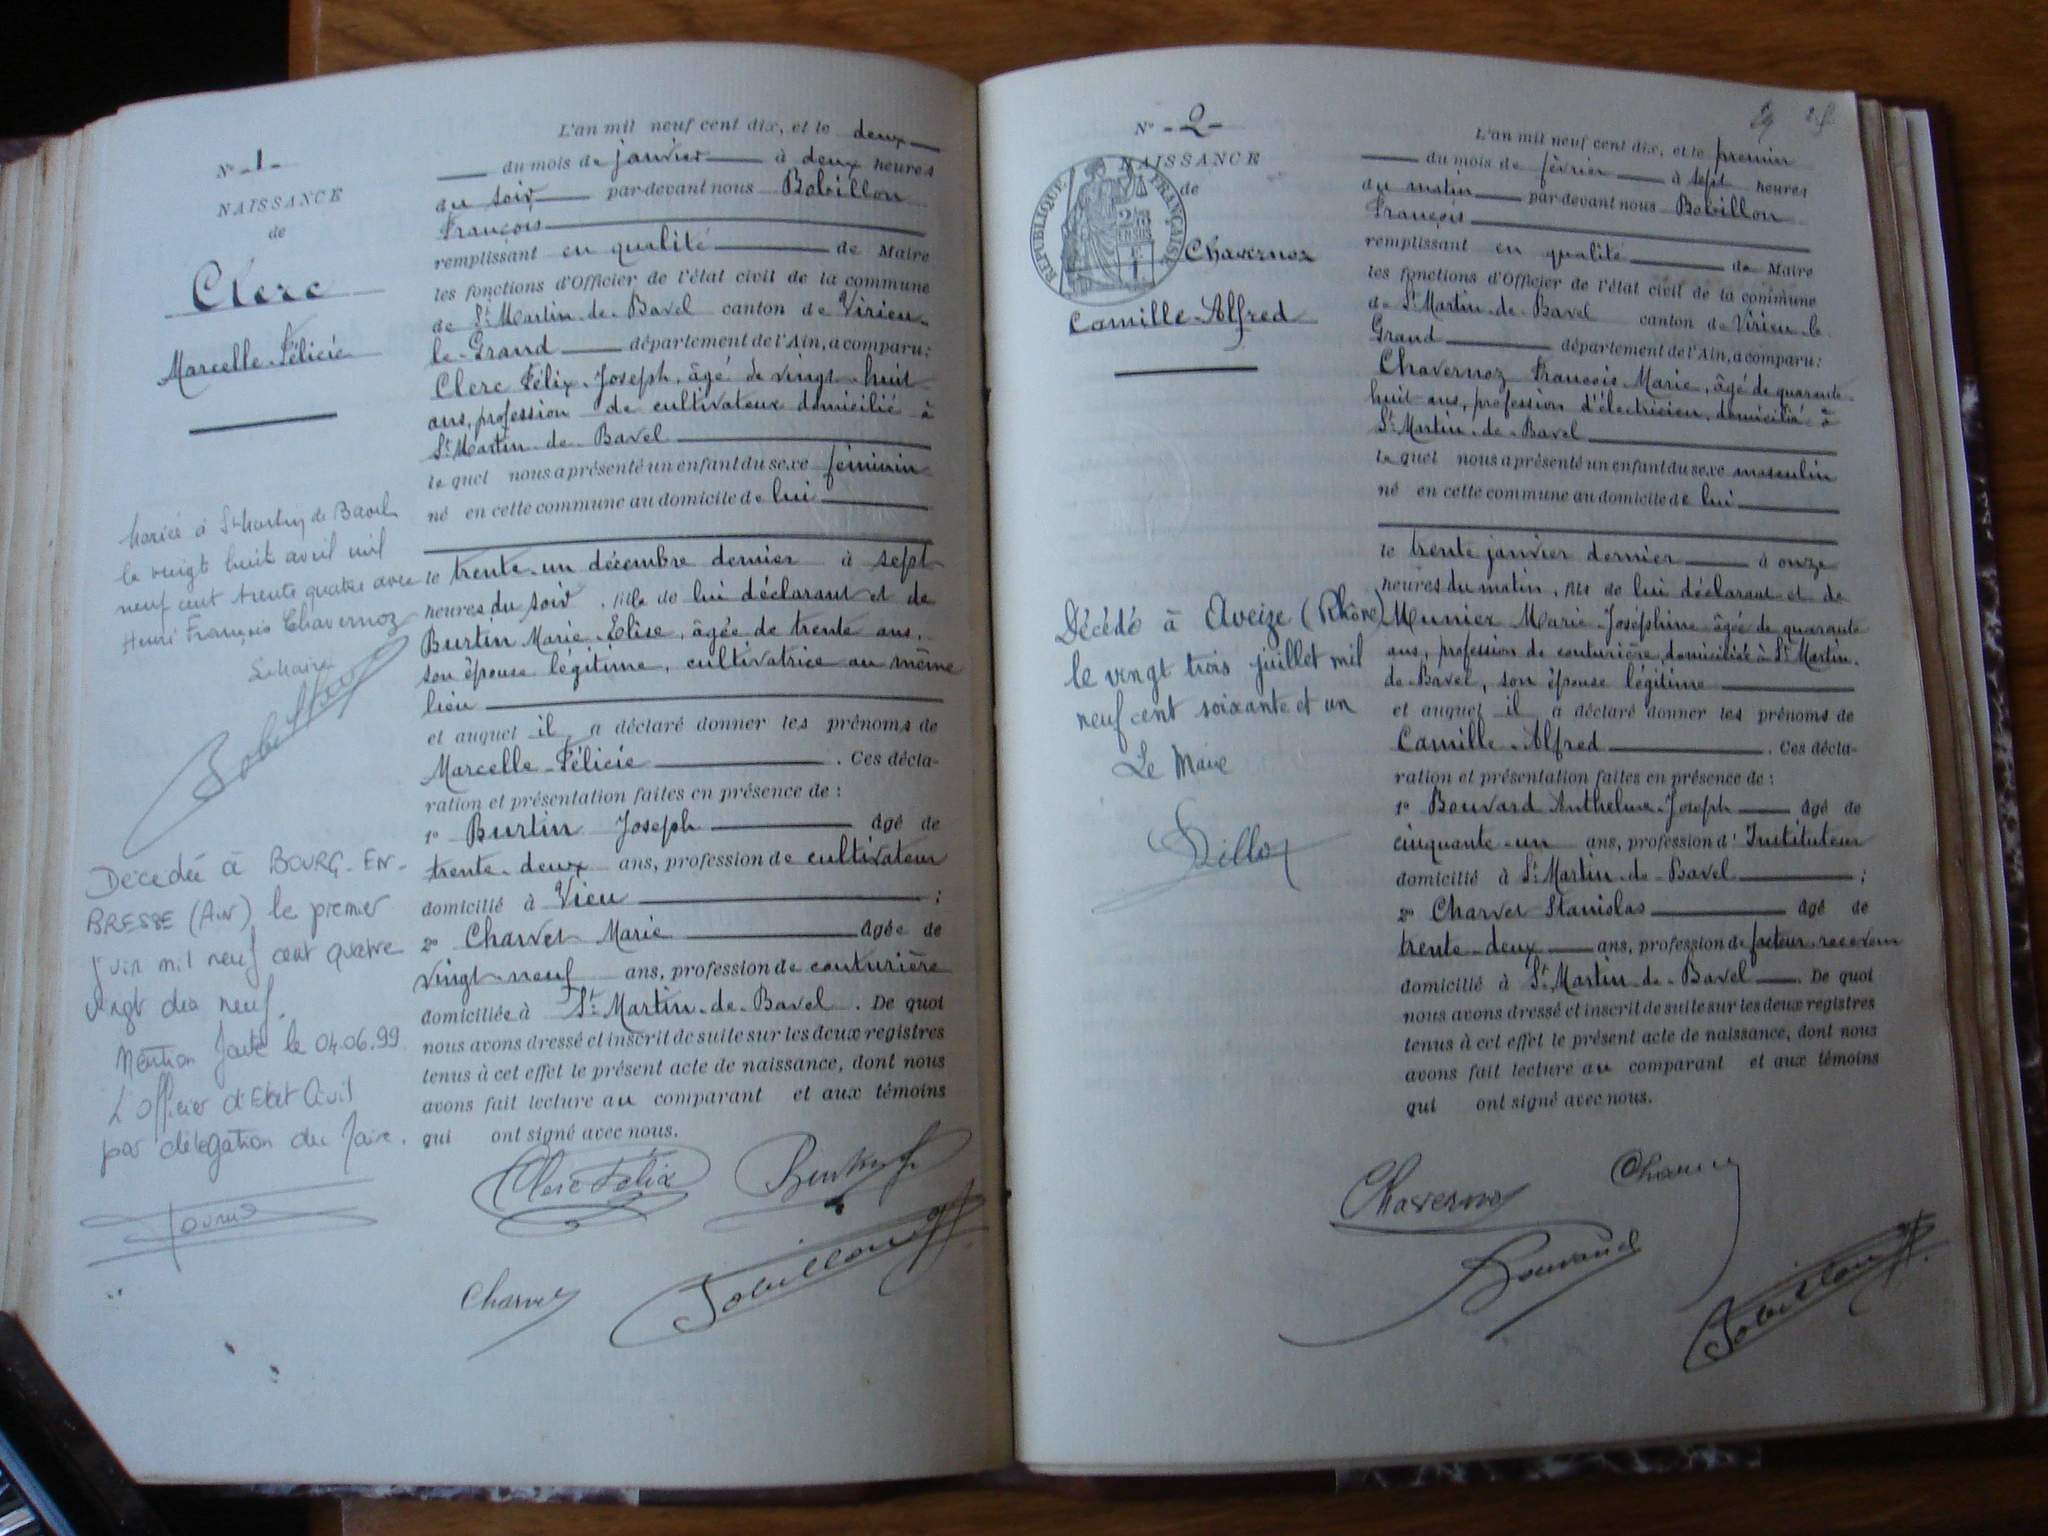 N° - 1 -
NAISSANCE
de
Clerc
Marcelle-Félicie
Mariée à St Martin de Bavel
le vingt huit avril mil
neuf cent trente quatre avec
Henri François Chavernoz
Le Maire
Bobillon
Décédée à BOURG-EN-
BRESSE (AIN) le premier
juin mil neuf cent quatre
vingt dix neuf.
Mention faite le 04.06.99
L'Officier d'Etat Civil
par délégation du Maire.
L'an mil neuf cent dix, et le deux
du mois de janvier à deux heures
du soir par-devant nous Bobillon
François
remplissant en qualité de Maire
les fonctions d'Officier de l'état civil de la commune
de St Martin-de-Bavel canton de Virieu-
le-Grand département de l'Ain, a comparu:
Clerc Félix-Joseph, âgé de vingt-huit
ans, profession de cultivateur domicilié à
St Martin-de-Bavel
lequel nous a présenté un enfant du sexe féminin
né en cette commune au domicile de lui
le trente-un décembre dernier à sept
heures du soir, fille de lui déclarant et de
Burtin Marie-Elise, âgée de trente ans,
son épouse légitime, cultivatrice au même
lieu
et auquel il a déclaré donner les prénoms de
Marcelle-Félicie. Ces décla-
ration et présentation faites en présence de :
1° Burtin Joseph âgé de
trente-deux ans, profession de cultivateur
domicilié à Vieu ;
2° Charvet Marie âgée de
vingt-neuf ans, profession de couturière
domiciliée à St Martin-de-Bavel. De quoi
nous avons dressé et inscrit de suite sur les deux registres
tenus à cet effet le présent acte de naissance, dont nous
avons fait lecture au comparant et aux témoins
qui ont signé avec nous.
Clerc Félix
Burtin J.
Charvet
Bobillon
N° - 2 -
NAISSANCE
de
RÉPUBLIQUE FRANÇAISE
Chavernoz
Camille-Alfred
Décédé à Aveize (Rhône)
le vingt trois juillet mil
neuf cent soixante et un
Le Maire
L'an mil neuf cent dix, et le premier
du mois de février à sept heures
du matin par-devant nous Bobillon
François
remplissant en qualité de Maire
les fonctions d'Officier de l'état civil de la commune
de St Martin-de-Bavel canton de Virieu-le
Grand département de l'Ain, a comparu:
Chavernoz François Marie, âgé de quarante-
huit ans, profession d'électricien, domicilié à
St Martin-de-Bavel
lequel nous a présenté un enfant du sexe masculin
né en cette commune au domicile de lui
le trente janvier dernier à onze
heures du matin, fils de lui déclarant et de
Munier Marie-Joséphine âgée de quarante
ans, profession de couturière, domiciliée à St Martin-
de-Bavel, son épouse légitime
et auquel il a déclaré donner les prénoms de
Camille-Alfred. Ces décla-
ration et présentation faites en présence de :
1° Bouvard Anthelme-Joseph âgé de
cinquante-un ans, profession d'Instituteur
domicilié à St Martin-de-Bavel ;
2° Charvet Stanislas âgé de
trente-deux ans, profession de facteur-receveur
domicilié à St Martin-de-Bavel. De quoi
nous avons dressé et inscrit de suite sur les deux registres
tenus à cet effet le présent acte de naissance, dont nous
avons fait lecture au comparant et aux témoins
qui ont signé avec nous.
Chavernoz
Charvet
Bouvard
Bobillon